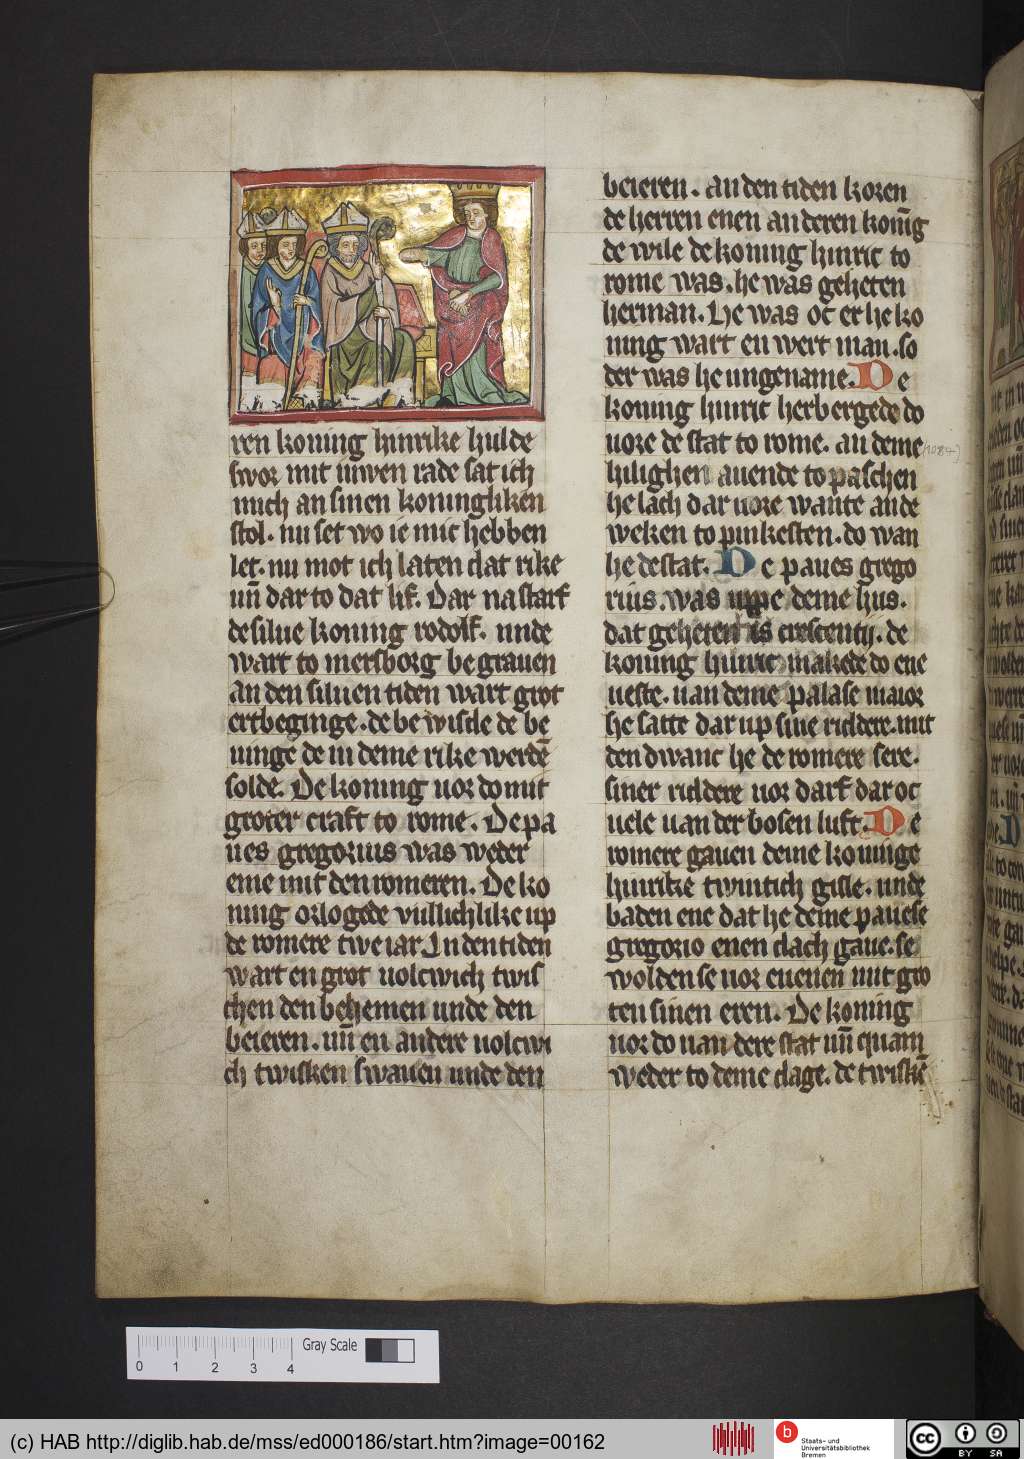 ren koning hinrike hulde
swor mit iuwen rade sat ich
mich an sinen koningliken
stol. nu set wo ie mic hebben
let. nu mot ich laten dat rike
un̄ dar to dat lif. Dar na starf
de silue koning rodolf. unde
wart to mersborg begrauen
an den siluen tiden wart grot
ertbeginge. de bewisde de be
uinge de in deme rike werdē
solde. De koning uor do mit
groter craft to rome. De pa
ues gregorius was weder
eme mit den romeren. De ko
ning orlogede vullichlike up
de romere twe iar. In den tiden
wart en grot uolcwich twis
chen den behemen unde den
beieren. un̄ en andere uolcwi
ch twisken swauen unde den
beieren. an den tiden koren
de herren enen anderen konīg
de wile de koning hinric to
rome was. he was geheten
herman. He was oc er he ko
ning wart en wert man. so
der was he ungename. De
koning hinric herbergede do
uore de stat to rome. an deme
hilighen auende to paschen
he lach dar uore wante an de
weken to pinkesten. do wan
he de stat. De paues grego
rius. was uppe deme hus.
dat geheten is crescentij. de
koning hinric makede do ene
ueste. uan deme palase maior
he satte dar up sine riddere. mit
den dwanc he de romere sere.
siner riddere uor darf dar oc
uele uan der bosen luft. De
romere gauen deme koninge
hinrike twintich gisle. unde
baden ene dat he deme pauese
gregorio enen dach gaue. se
wolden se uor euenen mit gro
ten sinen eren. De koning
uor do uan dere stat un̄ quam
weder to deme dage. de twiskē
(1084)
0 1 2 3 4
Gray Scale
(c) HAB http://diglib.hab.de/mss/ed000186/start.htm?image=00162
b
Staats- und
Universitätsbibliothek
Bremen
cc
BY SA